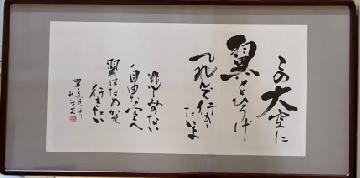 この大空に
翼をひろげ
飛んで行き
たいよ
悲しみのない
自由な空へ
翼はためかせ
行きたい